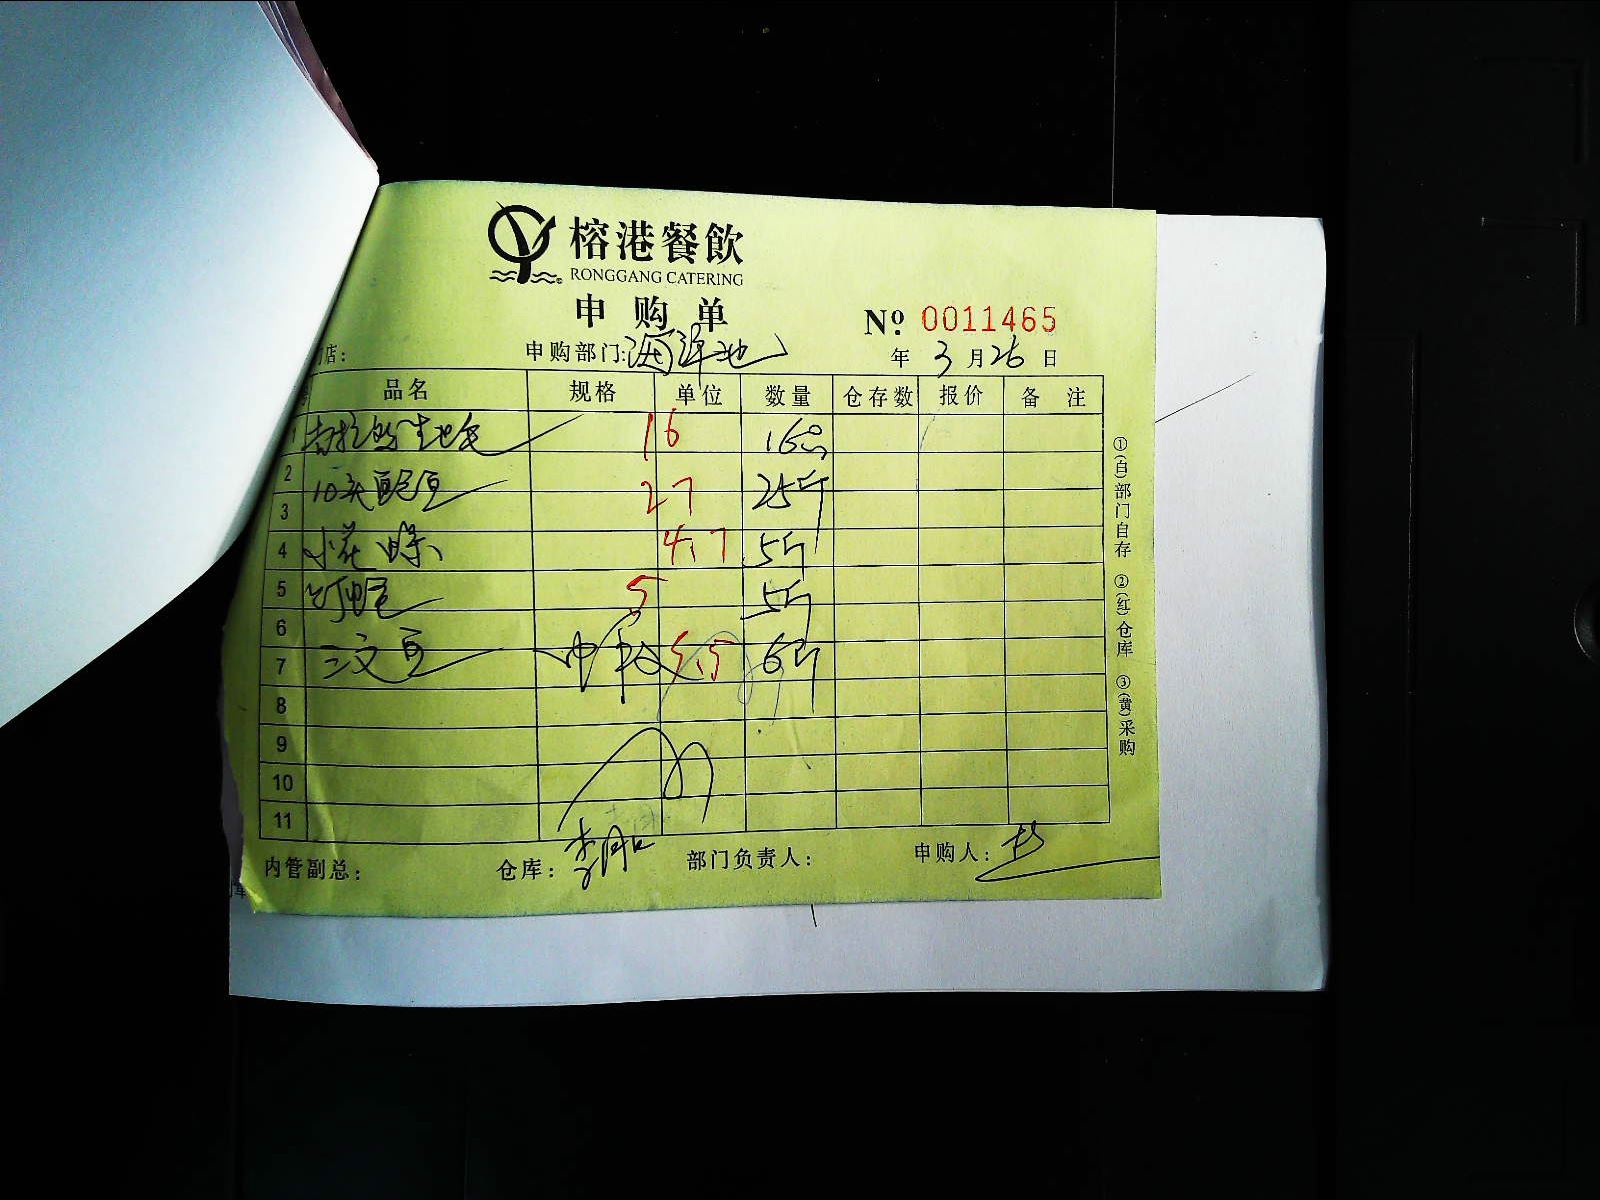 榕港餐飲
RONGGANG CATERING
申购单
Nº 0011465
店: 申购部门:海鲜池 年 3 月 26 日
品名 规格 单位 数量 仓存数 报价 备注
1 16 16
2 10头鲍鱼 27 25斤
3
4 小花 4.7 5斤
5 5 5斤
6
7 三文鱼 5.5 6斤
8
9
10
11
内管副总: 仓库: 部门负责人: 申购人:
①(白)部门自存 ②(红)仓库 ③(黄)采购